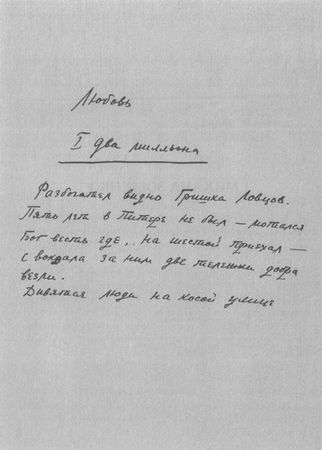 Любовь
I два мильона
Разбогател видно Гришка Ловцов.
Пять лет в Питере не был – мотался
Бог весть где, на шестой приехал –
с вокзала за ним две тележки добра
везли.
Дивятся люди на косой улице